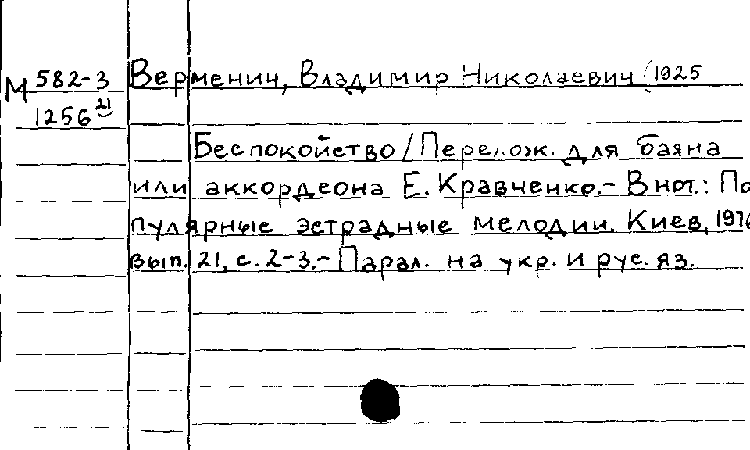 М 582-3 Верменич, Владимир Николаевич /1925
1256 21
Беспокойство / Перелож. для баяна
или аккордеона Е. Кравченко.- В нот.: По
пулярные эстрадные мелодии. Киев, 1976
вып. 21, с. 2-3.- Парал. на укр. и рус. яз.